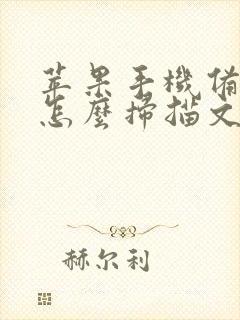 苹果手機備
怎麼掃描文
赫尔利